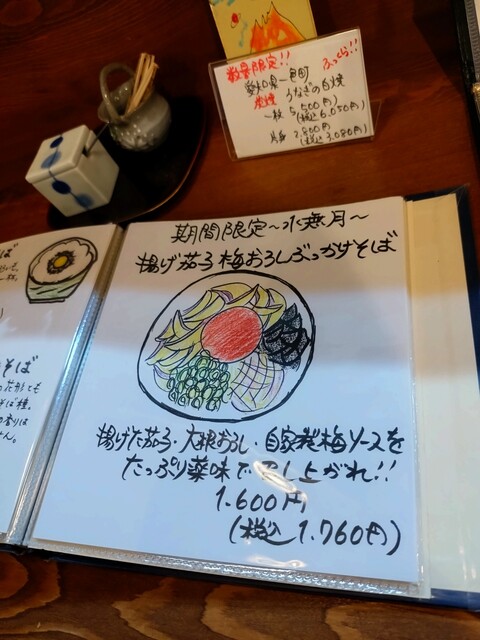 数量限定!! ふっくら!!
愛知県一色町
炭焼 うなぎの白焼
一枚 5,500円
(税込 6,050円)
2,800円
(税込 3,080円)
期間限定～水無月～
揚げ茄子梅おろしぶっかけそば
揚げた茄子・大根おろし・自家製梅ソースを
たっぷり薬味で召し上がれ!!
1.600円
(税込 1.760円)
そば
そば
の花がても
そば種。
の香りは
せん。